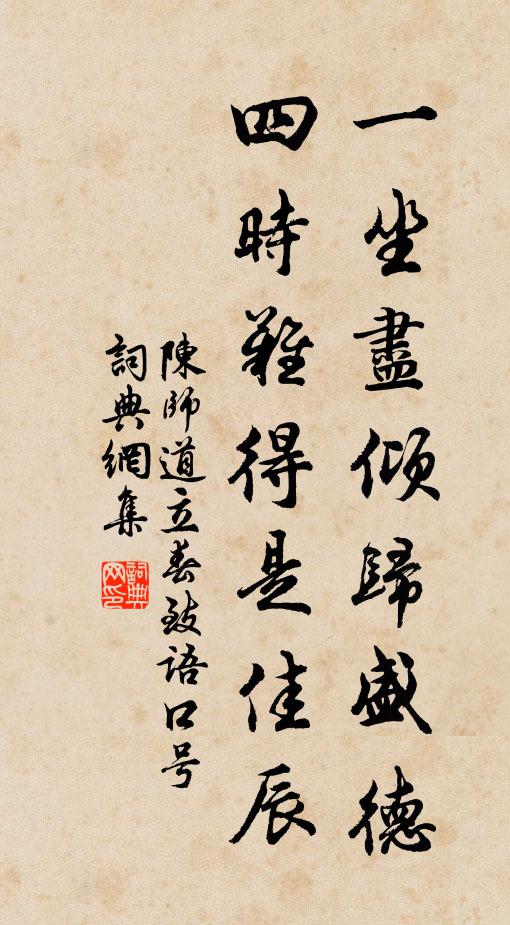 一坐盡傾歸盛德
四時難得是佳辰
陳師道立春致语口号
詞典網集
詞典网印